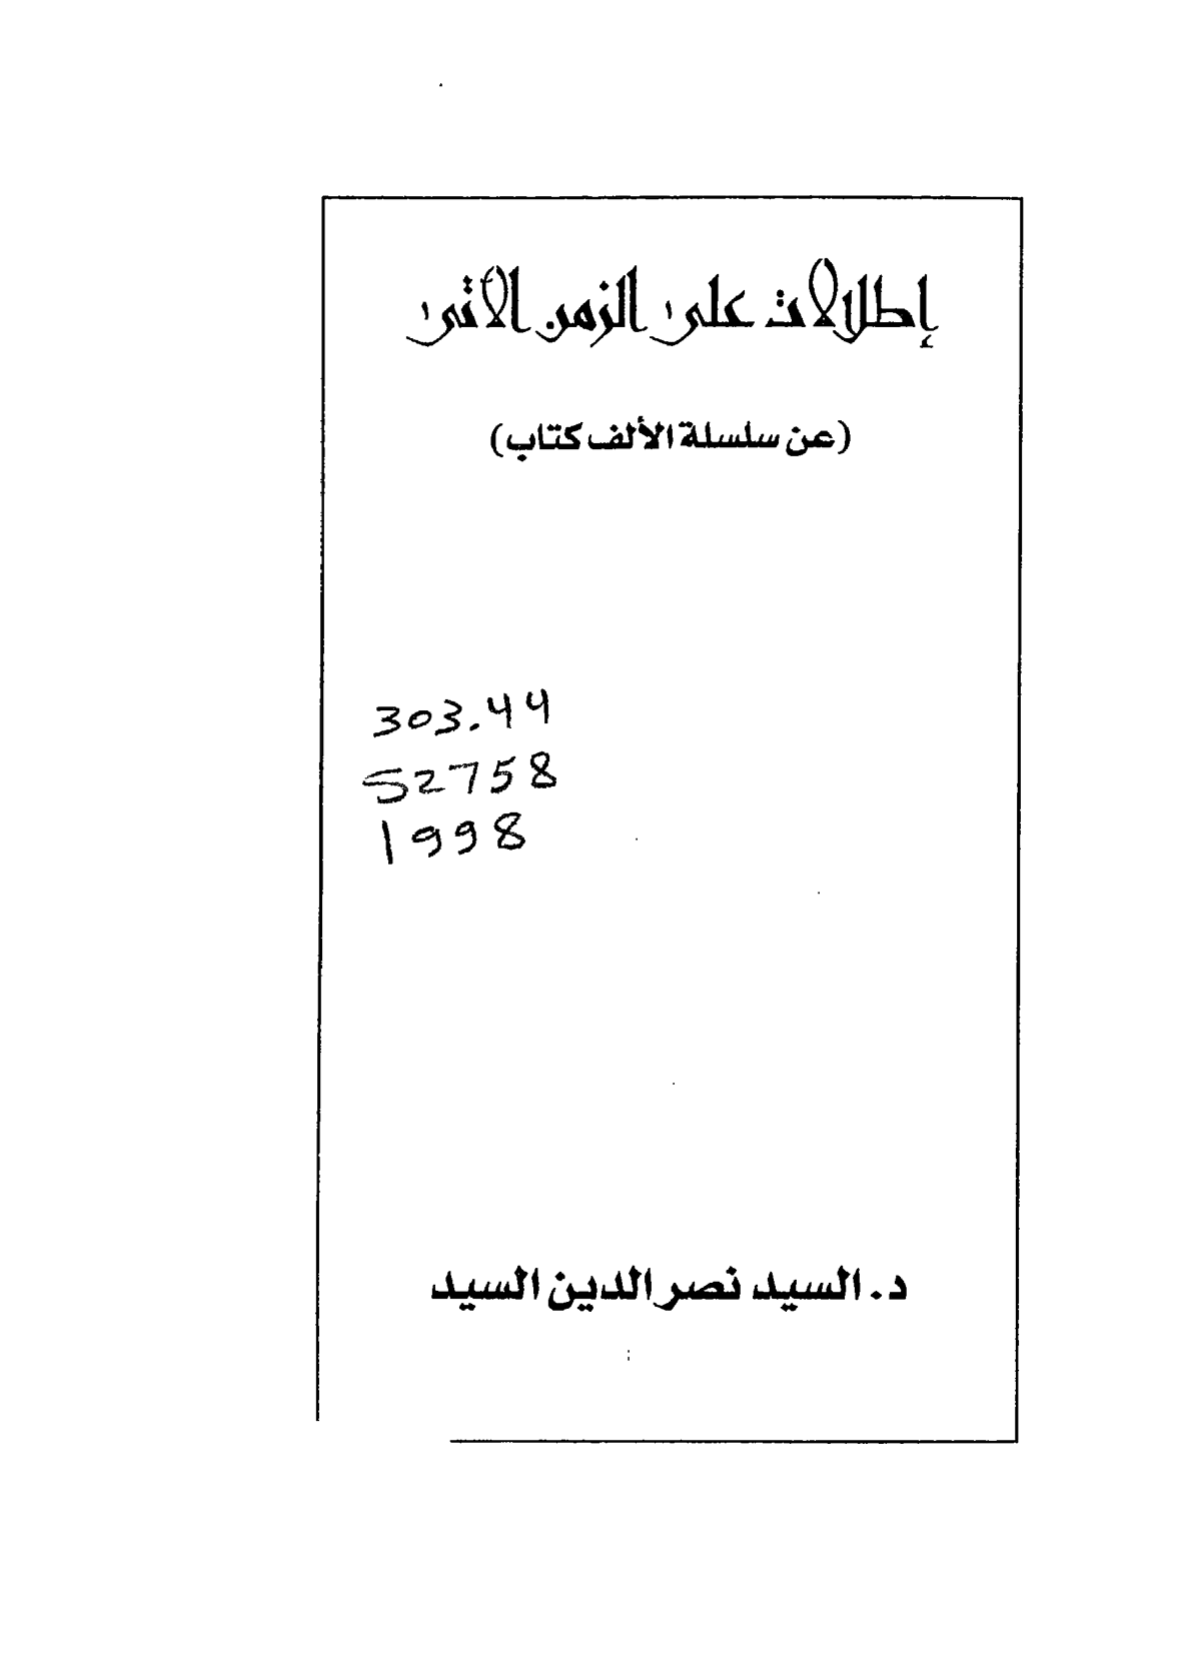 إطلالات على الزمن الأتى
(عن سلسلة الألف كتاب)
303.44
S2758
1998
د. السيد نصر الدين السيد